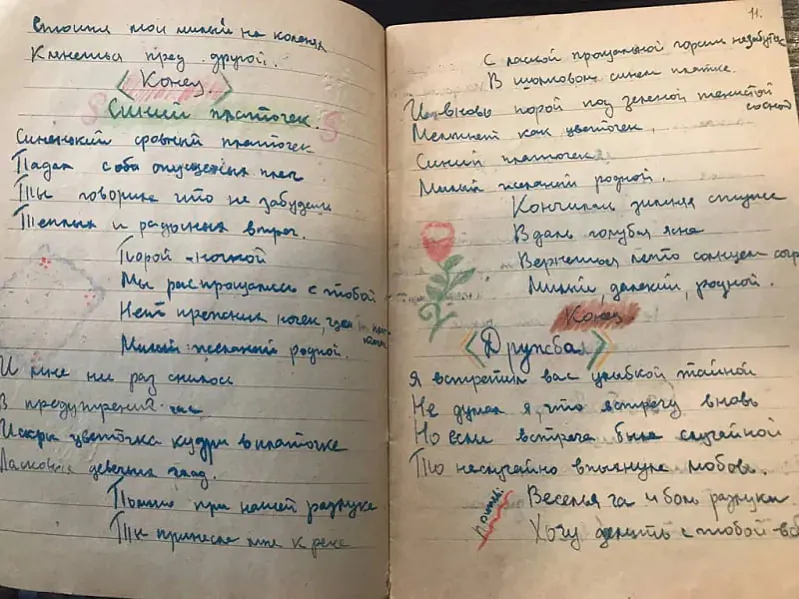 стоит мой милый на коленях
Клянеться пред другой.
Конец.
Синий платочек.
Синенький скромный платочек
Падал с оба опущеных плеч
Ты говорила что не забудешь
Теплых и радосных встреч.
Порой ночной
Мы распрощались с тобой
Нет прежних ночек, где ты плат-
очек
Милый желаный родной.
И мне не раз снились
В предутрений час
Искры цветочка кудри в платочке
Ласковых девечих глаз.
Помню при нашей разлуке
Ты принесла мне к реке
11.
С лаской прощальной горсть незабудок
В шолковом синем платке.
И вновь порой под зеленой тенистой
сосной
Мелькнет как цветочек,
Синий платочек
Милый желаный родной.
Кончилась зимняя стужа
В даль голубая ясна
Вернеться лето солнцем согр
Милый далекий, родной.
Конец.
Дружба
Я встретил вас улыбкой тайной
Не думал я, что встречу вновь
Но если встреча была случайной
То неслучайно вспыхнула любовь.
Припев:
Веселья га и боль разлуки
Хочу делить с тобой вс